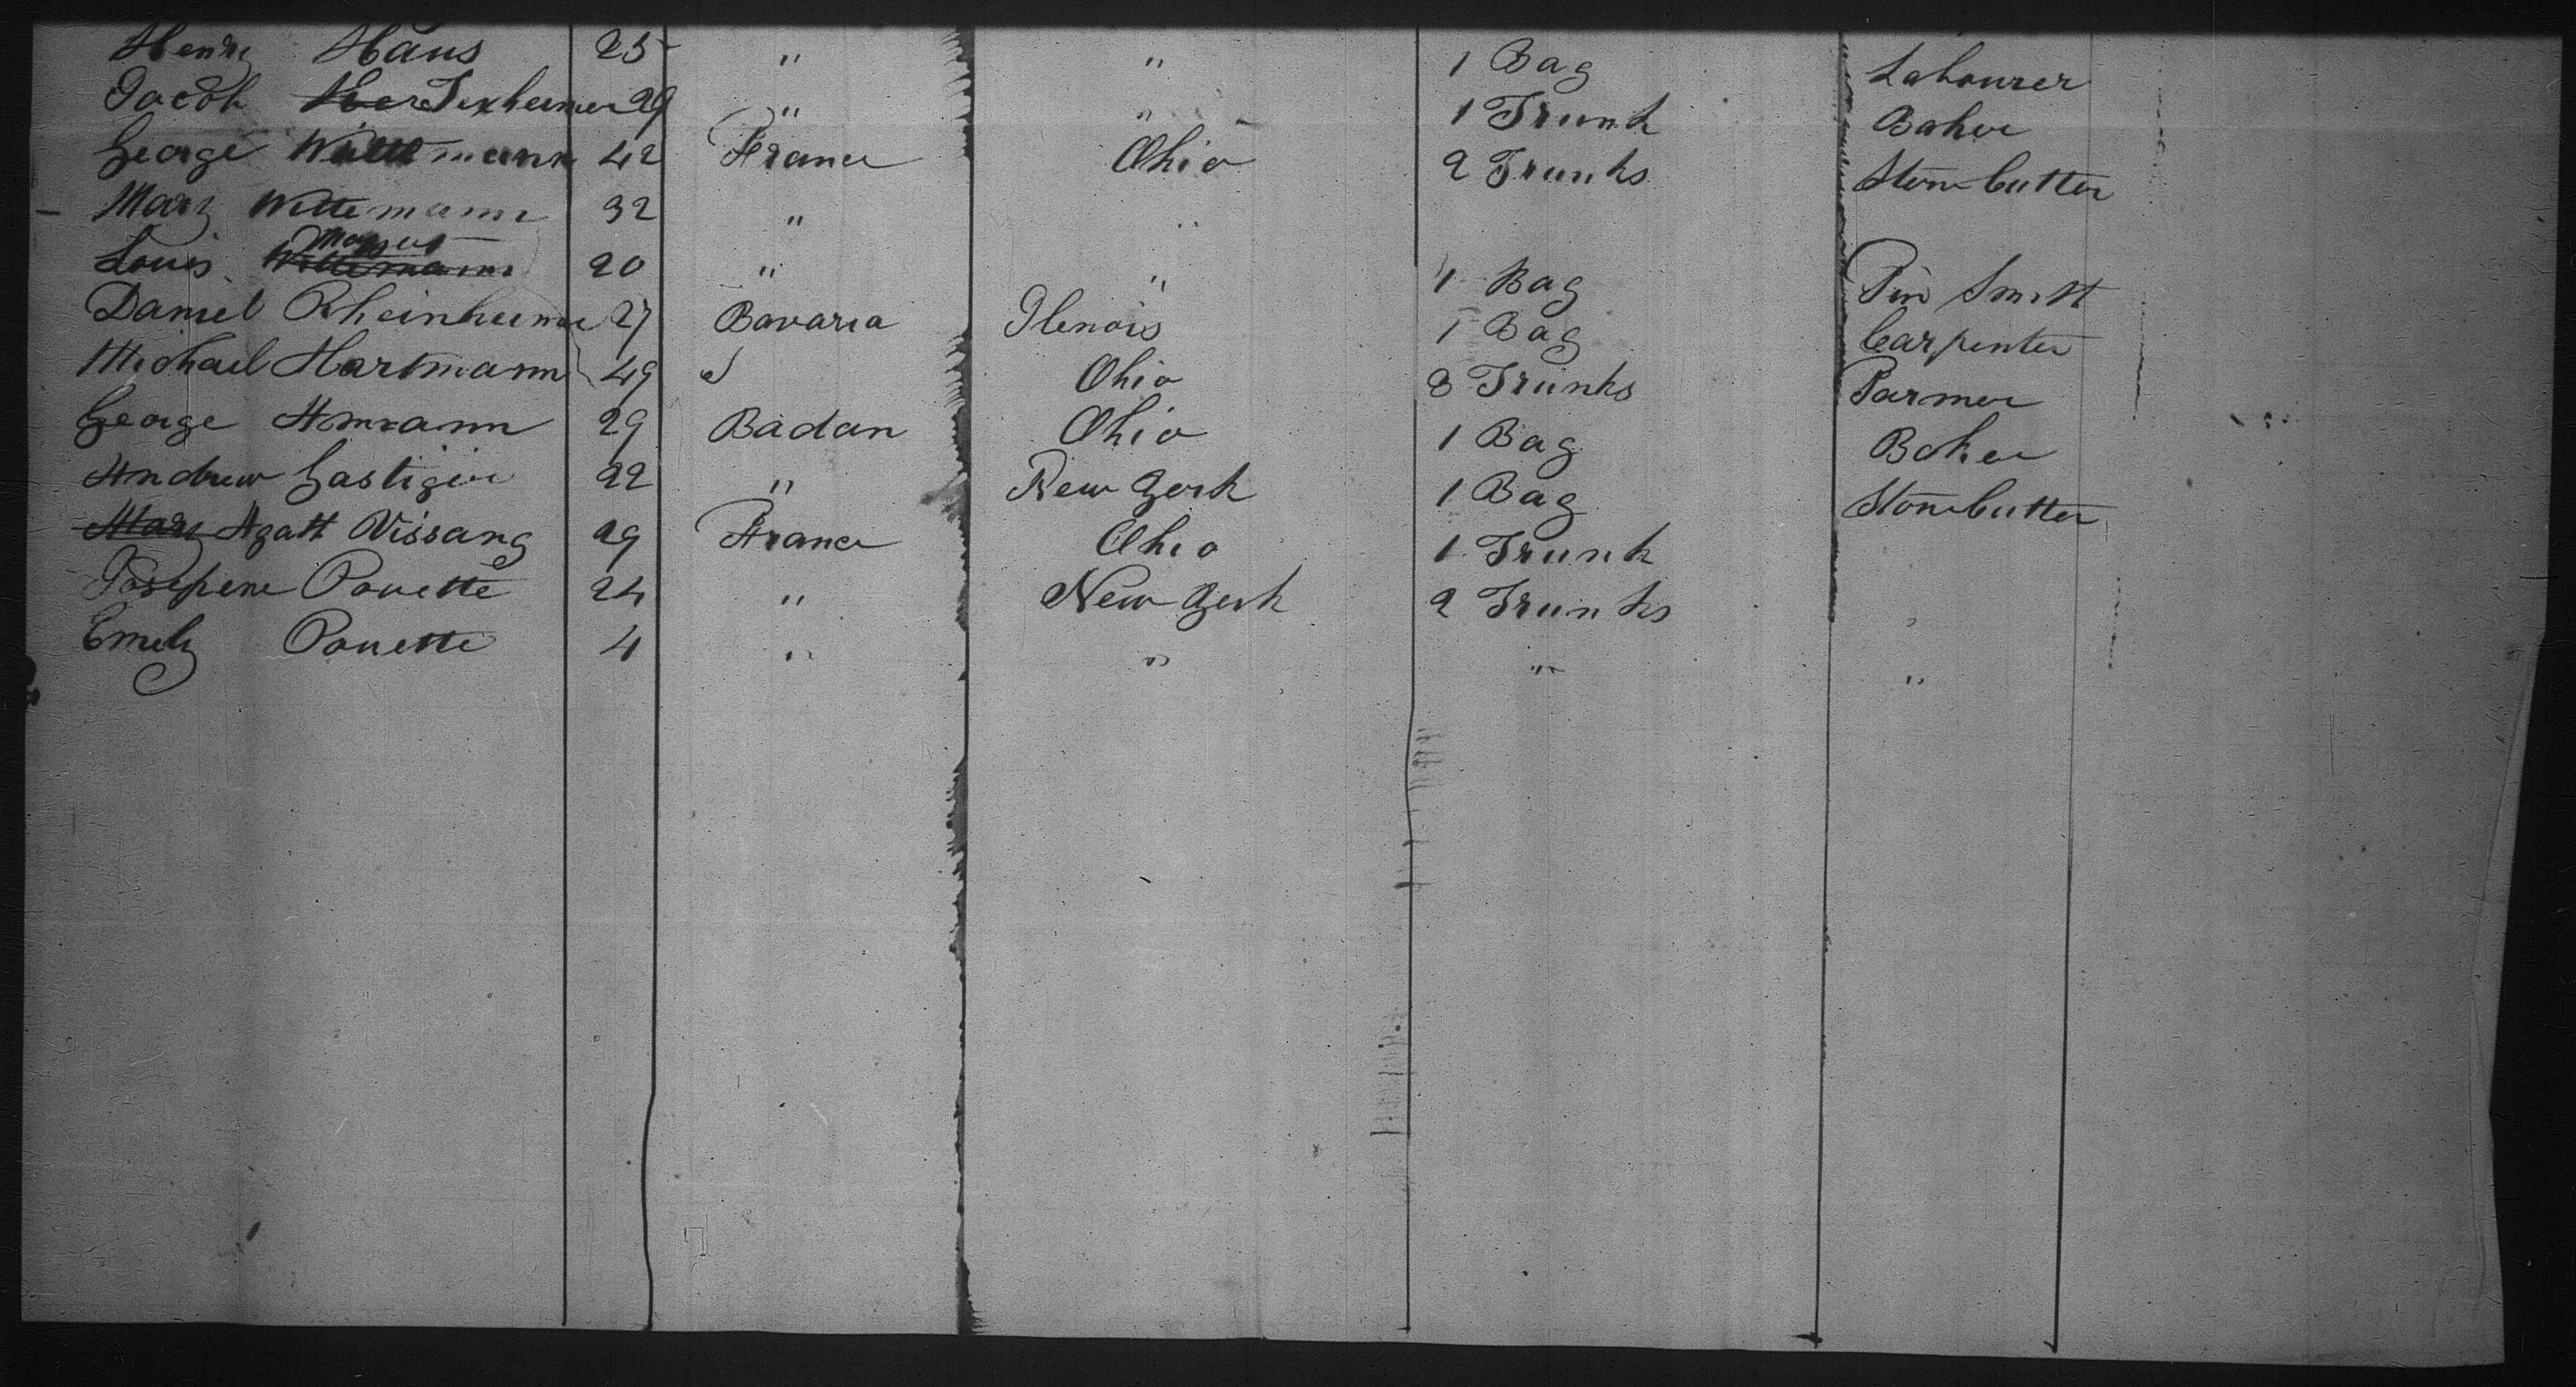 Henry Haus 25 " " 1 Bag Labourer
Jacob Ker Sexheimer 29 " " 1 Trunk Baker
George Wittemann 42 France Ohio 2 Trunks Stone Cutter
Mary Wittemann 32 " "
Louis Wittemann 20 " " 1 Bag Tin Smitt
Daniel Rheinheimer 27 Bavaria Ilenois 1 Bag Carpenter
Michael Hartmann 49 d Ohio 3 Trunks Farmer
George Ammann 29 Badan Ohio 1 Bag Baker
Andrew Gastiger 22 " New York 1 Bag Stone Cutter
Mary Agatt Vissang 29 France Ohio 1 Trunk
Josepene Pouette 24 " New York 2 Trunks "
Emely Pouette 4 " " " "